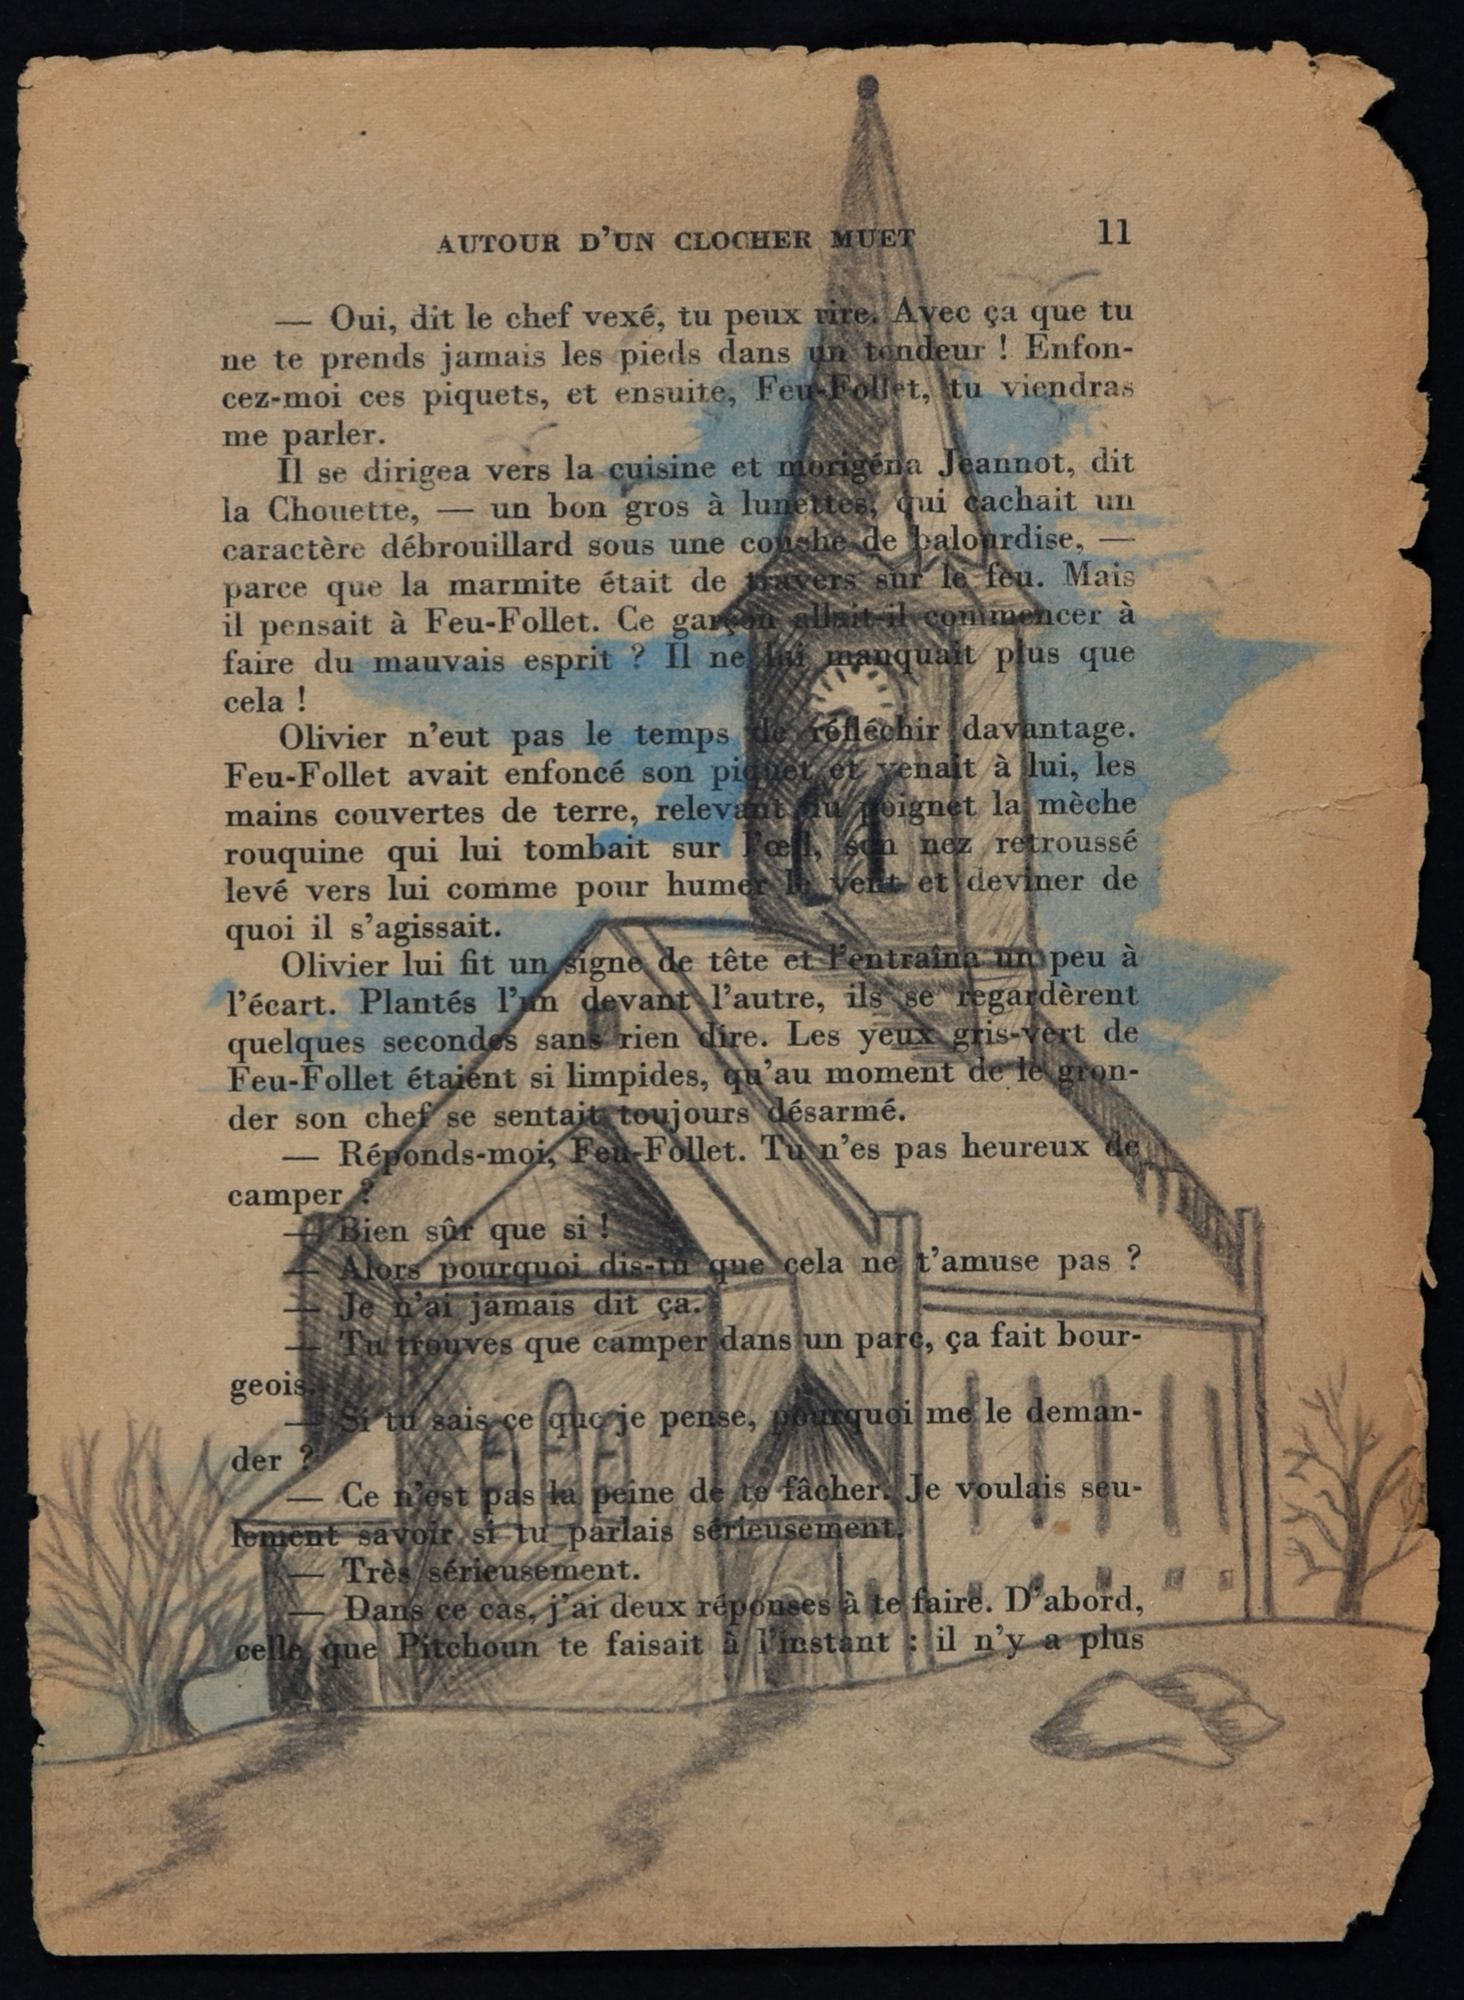 AUTOUR D'UN CLOCHER MUET 11
— Oui, dit le chef vexé, tu peux rire. Avec ça que tu
ne te prends jamais les pieds dans un tendeur ! Enfon-
cez-moi ces piquets, et ensuite, Feu-Follet, tu viendras
me parler.
Il se dirigea vers la cuisine et morigéna Jeannot, dit
la Chouette, — un bon gros à lunettes, qui cachait un
caractère débrouillard sous une couche de balourdise, —
parce que la marmite était de travers sur le feu. Mais
il pensait à Feu-Follet. Ce garçon allait-il commencer à
faire du mauvais esprit ? Il ne lui manquait plus que
cela !
Olivier n'eut pas le temps de réfléchir davantage.
Feu-Follet avait enfoncé son piquet et venait à lui, les
mains couvertes de terre, relevant du poignet la mèche
rouquine qui lui tombait sur l'œil, son nez retroussé
levé vers lui comme pour humer le vent et deviner de
quoi il s'agissait.
Olivier lui fit un signe de tête et l'entraîna un peu à
l'écart. Plantés l'un devant l'autre, ils se regardèrent
quelques secondes sans rien dire. Les yeux gris-vert de
Feu-Follet étaient si limpides, qu'au moment de le gron-
der son chef se sentait toujours désarmé.
— Réponds-moi, Feu-Follet. Tu n'es pas heureux de
camper ?
— Bien sûr que si !
— Alors pourquoi dis-tu que cela ne t'amuse pas ?
— Je n'ai jamais dit ça.
— Tu trouves que camper dans un parc, ça fait bour-
geois.
— Si tu sais ce que je pense, pourquoi me le deman-
der ?
— Ce n'est pas la peine de te fâcher. Je voulais seu-
lement savoir si tu parlais sérieusement.
— Très sérieusement.
— Dans ce cas, j'ai deux réponses à te faire. D'abord,
celle que Pitchoun te faisait à l'instant : il n'y a plus